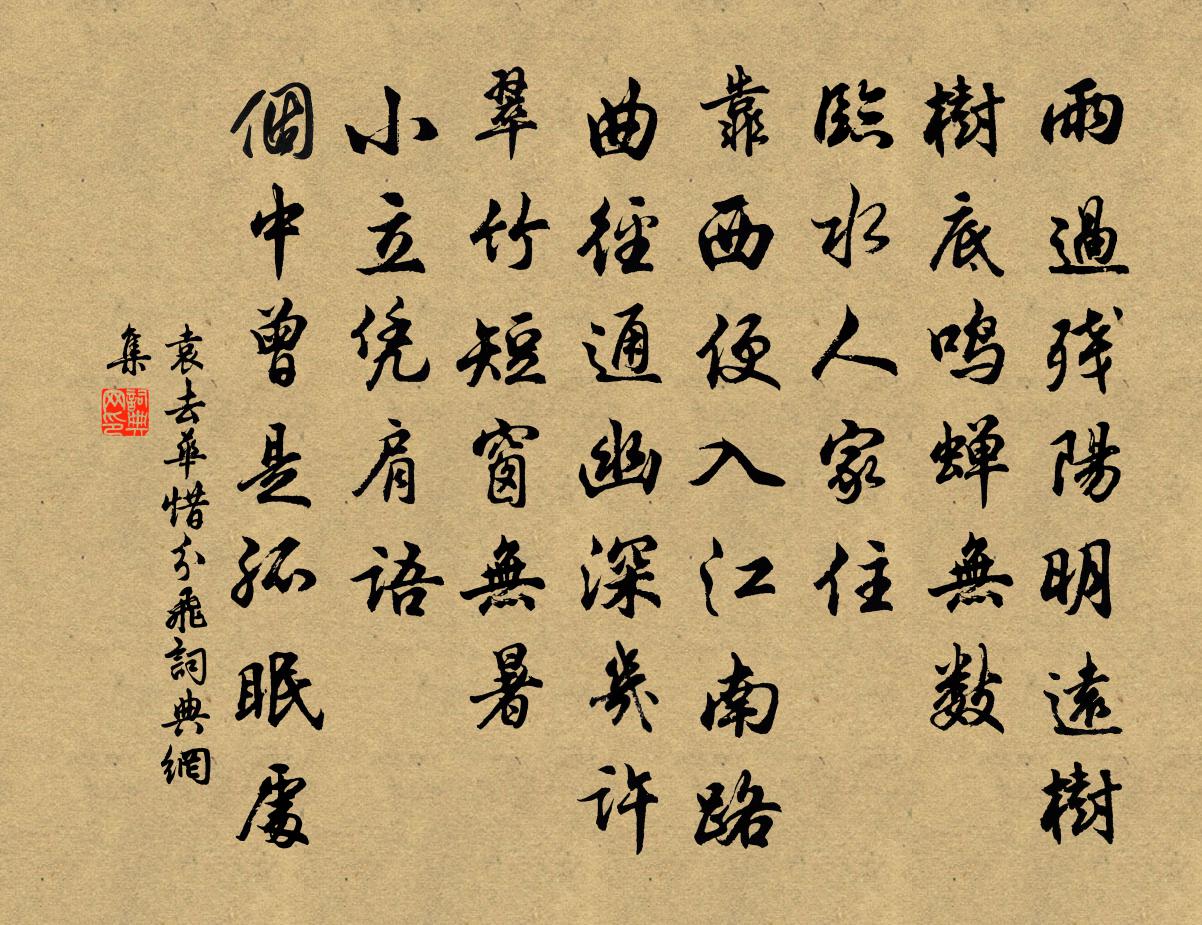 雨過残陽明遠樹
樹底鳴蝉無数
臨水人家住
靠西便入江南路
曲徑通幽深幾許
翠竹短窗無暑
小立凭肩語
個中曾是孤眠處
袁去華惜分飛詞典網
集
詞典
网印